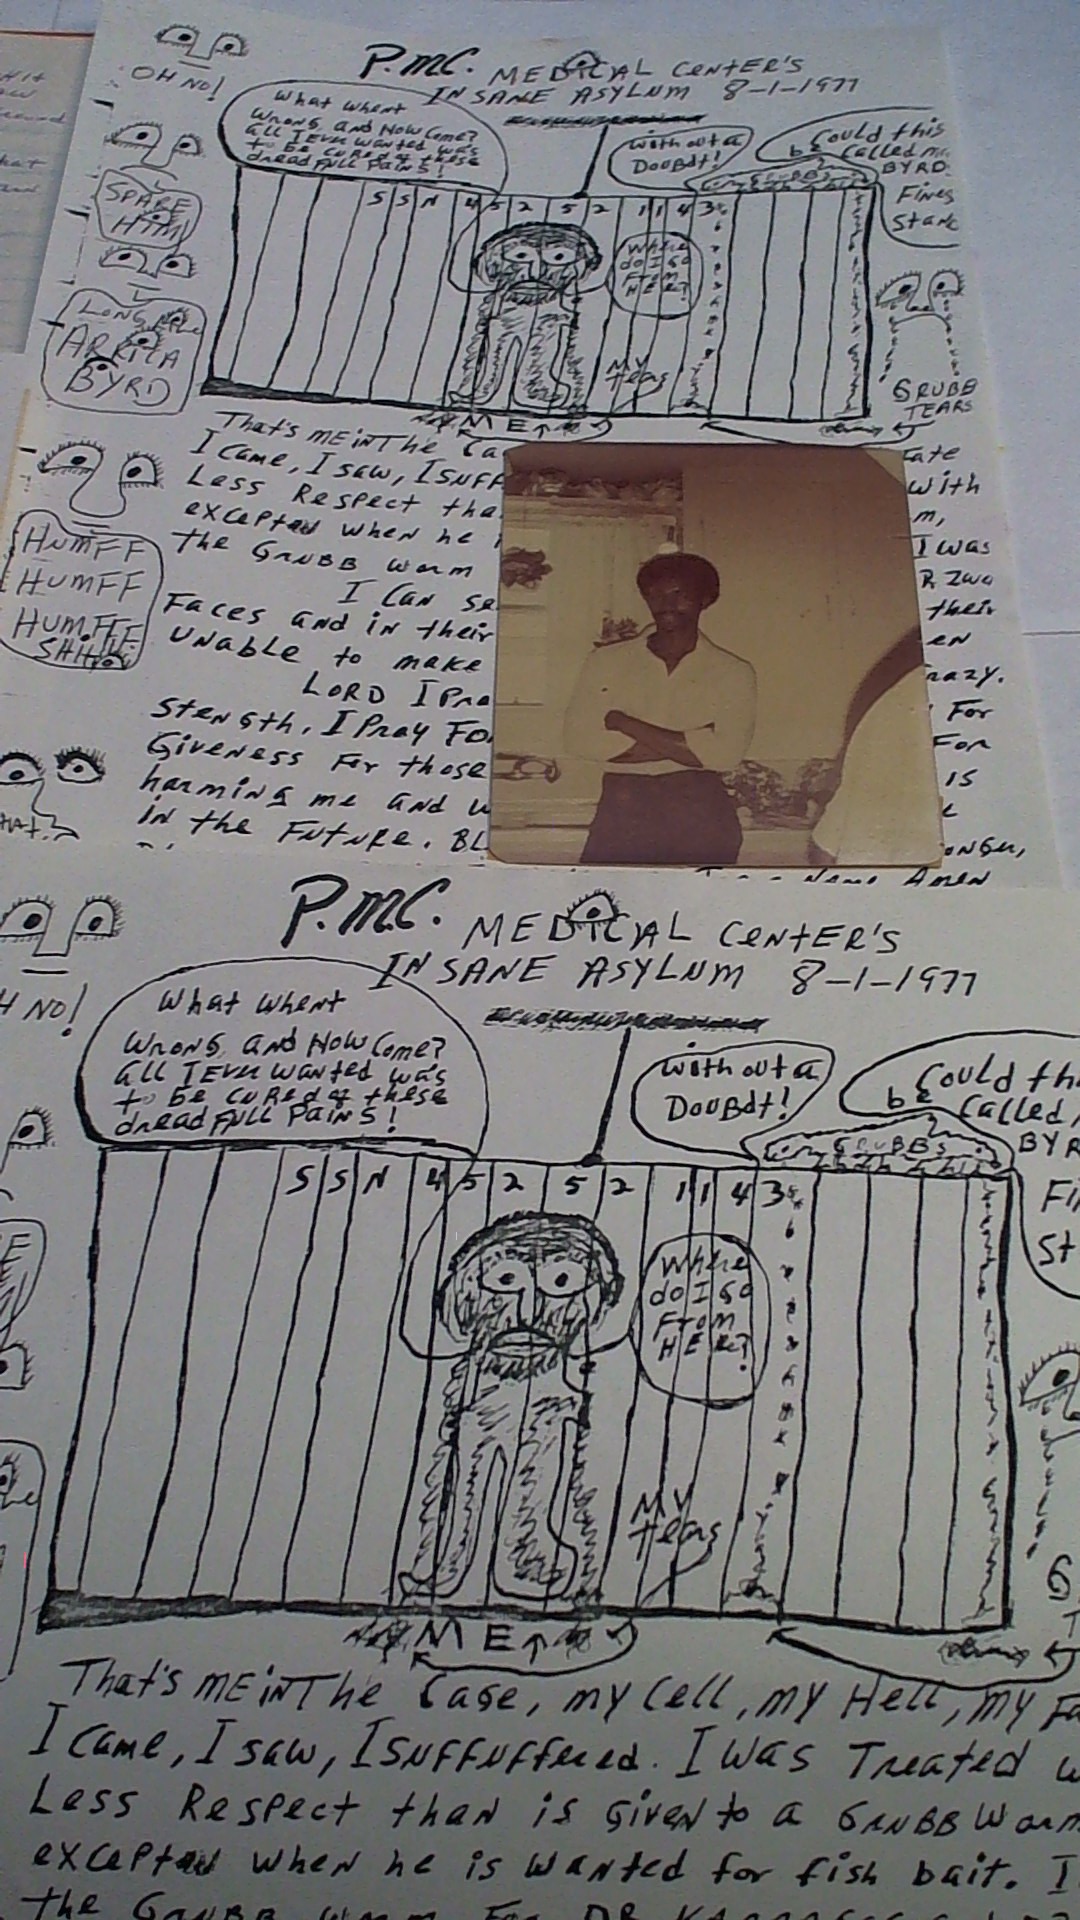 OH NO!
P.M.C. MEDICAL CENTER'S
INSANE ASYLUM 8-1-1977
What whent
Wrong, and How Come?
all I Ever wanted was
to be cured of these
dreadfull Pains!
with out a
Doubdt!
Could this
be called my
BYRD
Fines
Stand
SPARE
HIM
GRUBBS
S S N 4 5 2 5 2 1 1 4 3
Where
do I Go
From
HERE?
LONG
ARRICA
BYRD
MY
Tears
GRUBB
TEARS
ME
That's ME in The Ca
Fate
I came, I saw, I suff
with
Less Respect tha
m,
excepted when he
I was
the GRUBB worm
HUMFF
HUMFF
HUMFF
SHIT
I Can se
Faces and in their
their
unable to make
en
LORD I Pra
razy.
Stength, I Pray Fo
For
Giveness For those
For
harming me and w
is
in the Future. BL
onger,
Name Amen
P.M.C. MEDICAL CENTER'S
INSANE ASYLUM 8-1-1977
H NO!
What whent
Wrong, and How Come?
all I Ever wanted was
to be cured of these
dreadfull Pains!
with out a
Doubdt!
Could thi
be Called m
BYR
Fi
St
GRUBBS
S S N 4 5 2 5 2 1 1 4 3
Where
do I Go
From
HERE?
MY
Tears
G
T
ME
That's ME in The Cage, my Cell, my Hell, my Fa
I Came, I saw, I suffuffered. I was Treated w
Less Respect than is Given to a GRUBB Worm
excepted when he is wanted for fish bait. I
the GRUBB worm For DR